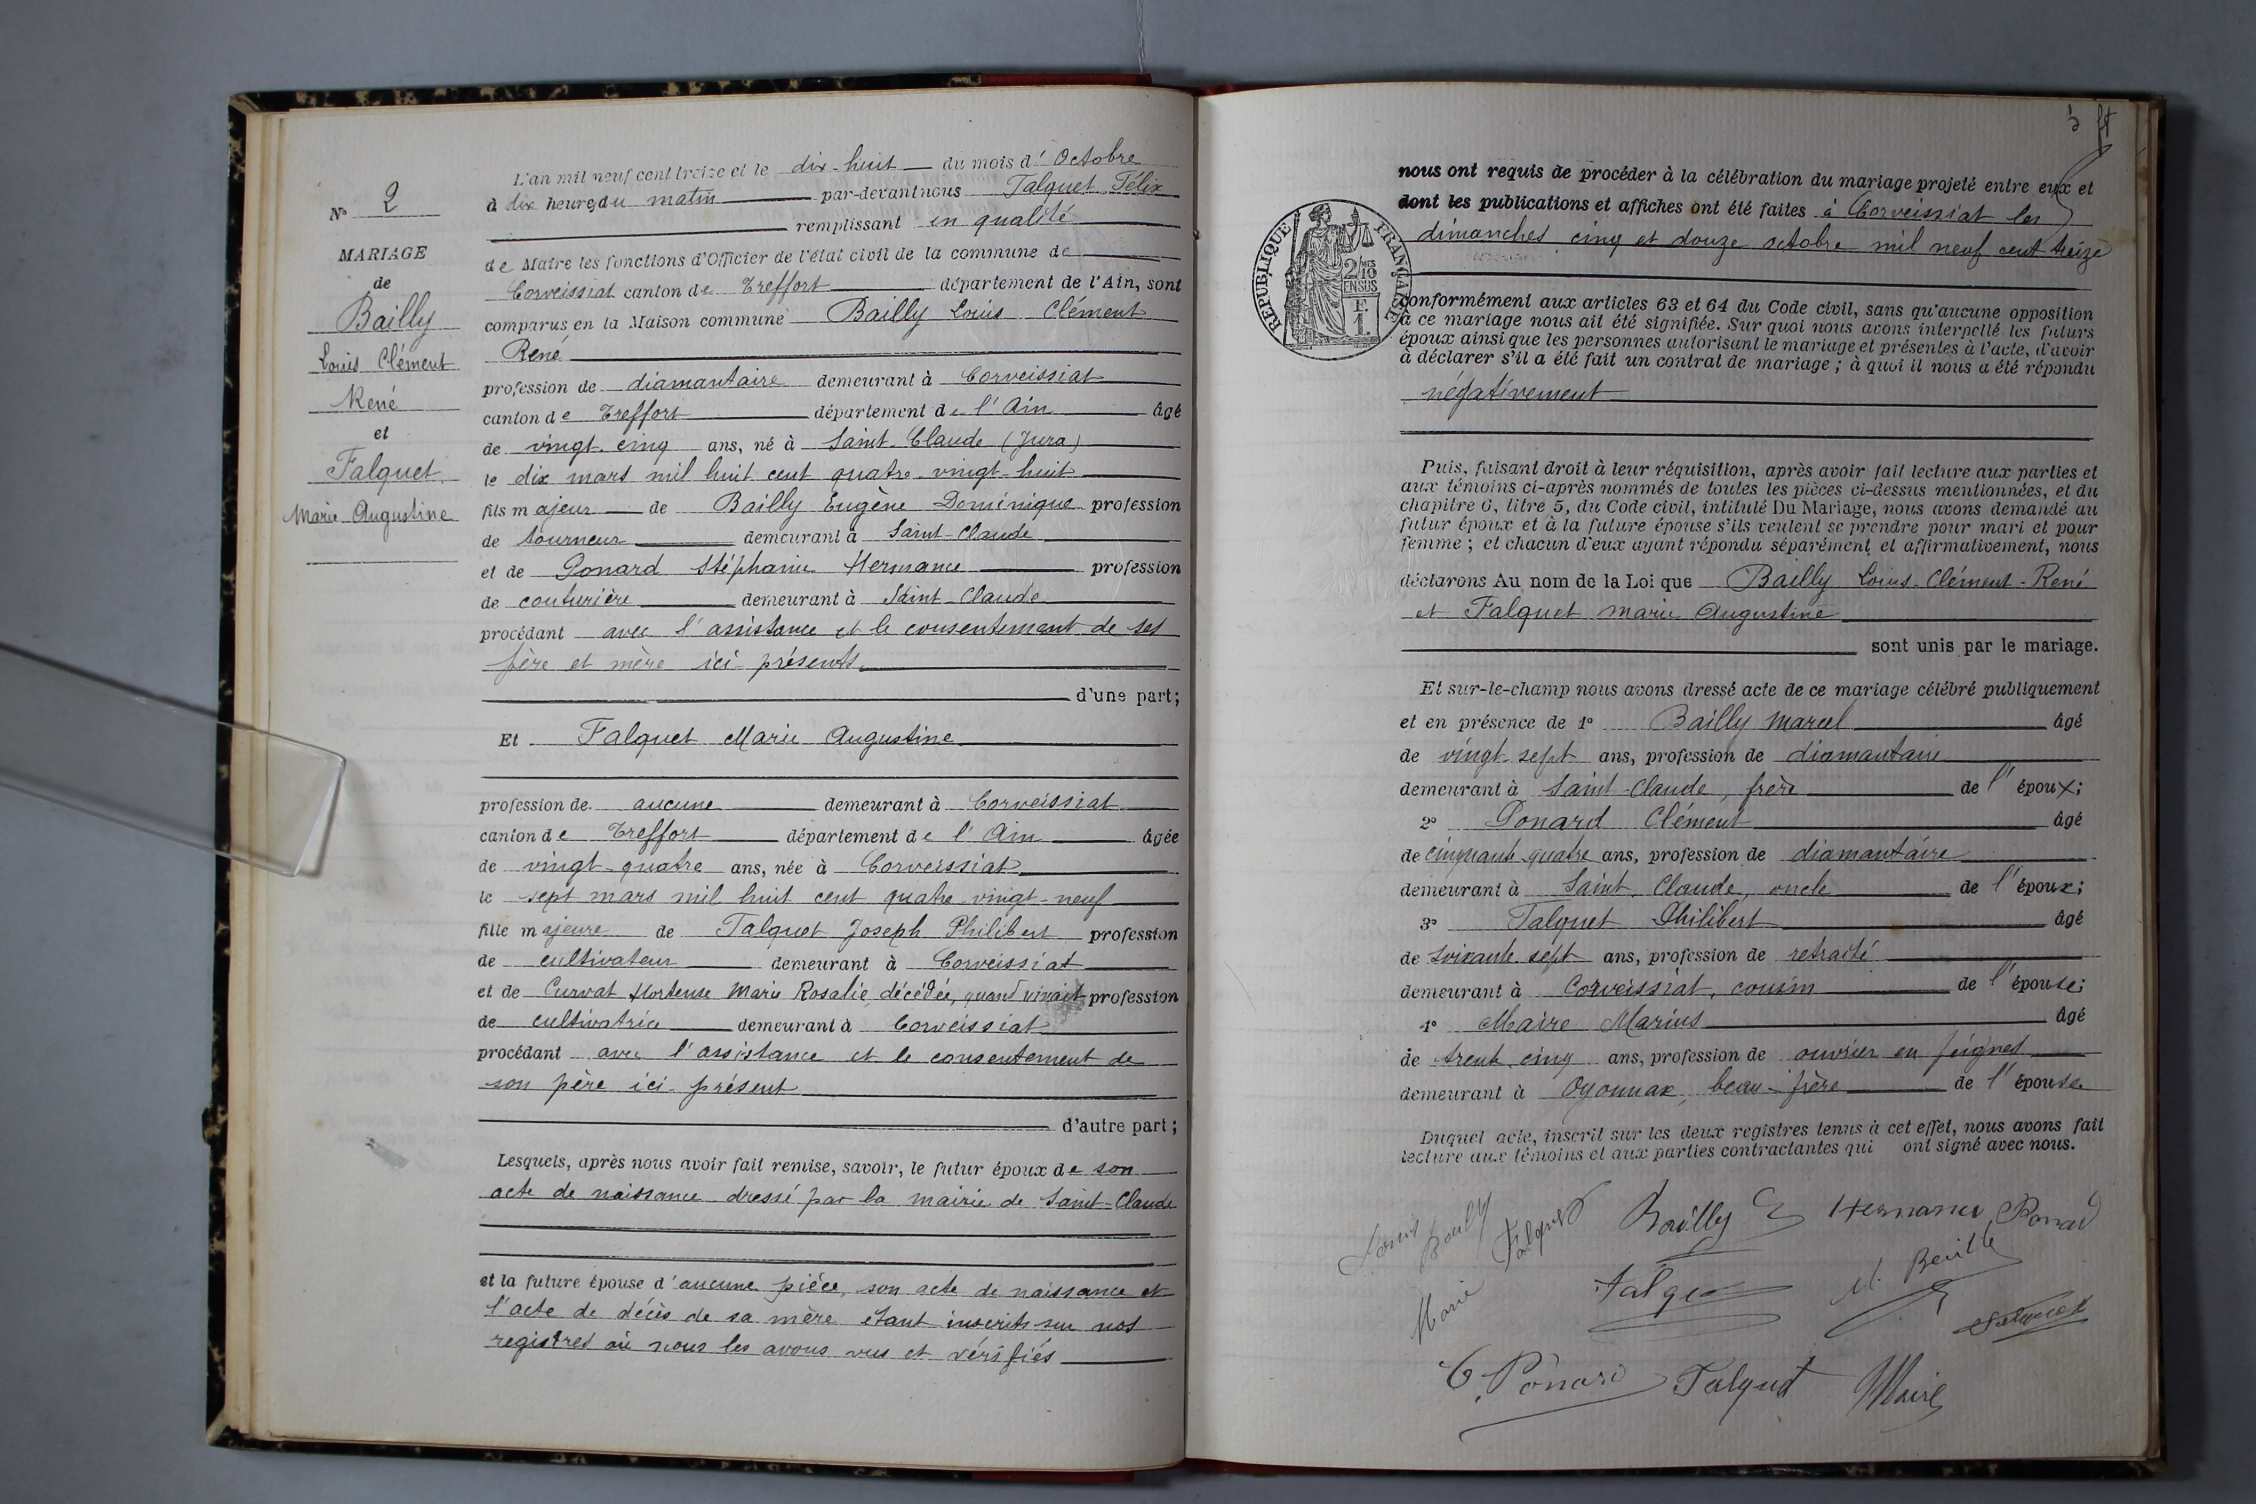 N° 2
MARIAGE
de
Bailly
Louis Clément
René
et
Falquet
Marie Augustine
L'an mil neuf cent treize et le dix-huit du mois d'Octobre
à dix heures du matin par-devant nous Falquet Félix
remplissant en qualité
de Maire les fonctions d'Officier de l'état civil de la commune de
Corveissiat canton de Treffort département de l'Ain, sont
comparus en la Maison commune Bailly Louis Clément
René
profession de diamantaire demeurant à Corveissiat
canton de Treffort département de l'Ain âgé
de vingt-cinq ans, né à Saint-Claude (Jura)
le dix mars mil huit cent quatre-vingt-huit
fils majeur de Bailly Eugène Dominique profession
de tourneur demeurant à Saint-Claude
et de Ponard Stéphanie Hermance profession
de couturière demeurant à Saint-Claude
procédant avec l'assistance et le consentement de ses
père et mère ici présents
d'une part;
Et Falquet Marie Augustine
profession de aucune demeurant à Corveissiat
canton de Treffort département de l'Ain âgée
de vingt-quatre ans, née à Corveissiat
le sept mars mil huit cent quatre-vingt-neuf
fille majeure de Falquet Joseph Philibert profession
de cultivateur demeurant à Corveissiat
et de Curvat Hortense Marie Rosalie, décédée, quand vivait profession
de cultivatrice demeurant à Corveissiat
procédant avec l'assistance et le consentement de
son père ici présent
d'autre part;
Lesquels, après nous avoir fait remise, savoir, le futur époux de son
acte de naissance dressé par la mairie de Saint-Claude
et la future épouse d'aucune pièce, son acte de naissance et
l'acte de décès de sa mère étant inscrits sur nos
registres où nous les avons vus et vérifiés
3
nous ont requis de procéder à la célébration du mariage projeté entre eux et
dont les publications et affiches ont été faites à Corveissiat les
dimanches cinq et douze octobre mil neuf cent treize
RÉPUBLIQUE FRANÇAISE
2/10
EN SUS
F.
1.
conformément aux articles 63 et 64 du Code civil, sans qu'aucune opposition
à ce mariage nous ait été signifiée. Sur quoi nous avons interpellé les futurs
époux ainsi que les personnes autorisant le mariage et présentes à l'acte, d'avoir
à déclarer s'il a été fait un contrat de mariage; à quoi il nous a été répondu
négativement
Puis, faisant droit à leur réquisition, après avoir fait lecture aux parties et
aux témoins ci-après nommés de toutes les pièces ci-dessus mentionnées, et du
chapitre 6, titre 5, du Code civil, intitulé Du Mariage, nous avons demandé au
futur époux et à la future épouse s'ils veulent se prendre pour mari et pour
femme; et chacun d'eux ayant répondu séparément et affirmativement, nous
déclarons Au nom de la Loi que Bailly Louis-Clément-René
et Falquet Marie Augustine
sont unis par le mariage.
Et sur-le-champ nous avons dressé acte de ce mariage célébré publiquement
et en présence de 1° Bailly Marcel âgé
de vingt sept ans, profession de diamantaire
demeurant à Saint-Claude, frère de l'époux;
2° Ponard Clément âgé
de cinquante-quatre ans, profession de diamantaire
demeurant à Saint-Claude, oncle de l'époux;
3° Falquet Philibert âgé
de soixante-sept ans, profession de retraité
demeurant à Corveissiat, cousin de l'épouse;
4° Maire Marius âgé
de trente cinq ans, profession de ouvrier en peignes
demeurant à Oyonnax, beau-frère de l'épouse
Duquel acte, inscrit sur les deux registres tenus à cet effet, nous avons fait
lecture aux témoins et aux parties contractantes qui ont signé avec nous.
Louis Bailly
Marie Falquet
Bailly
Hermance Ponard
Falquet
C. Ponard
Falquet
Maire